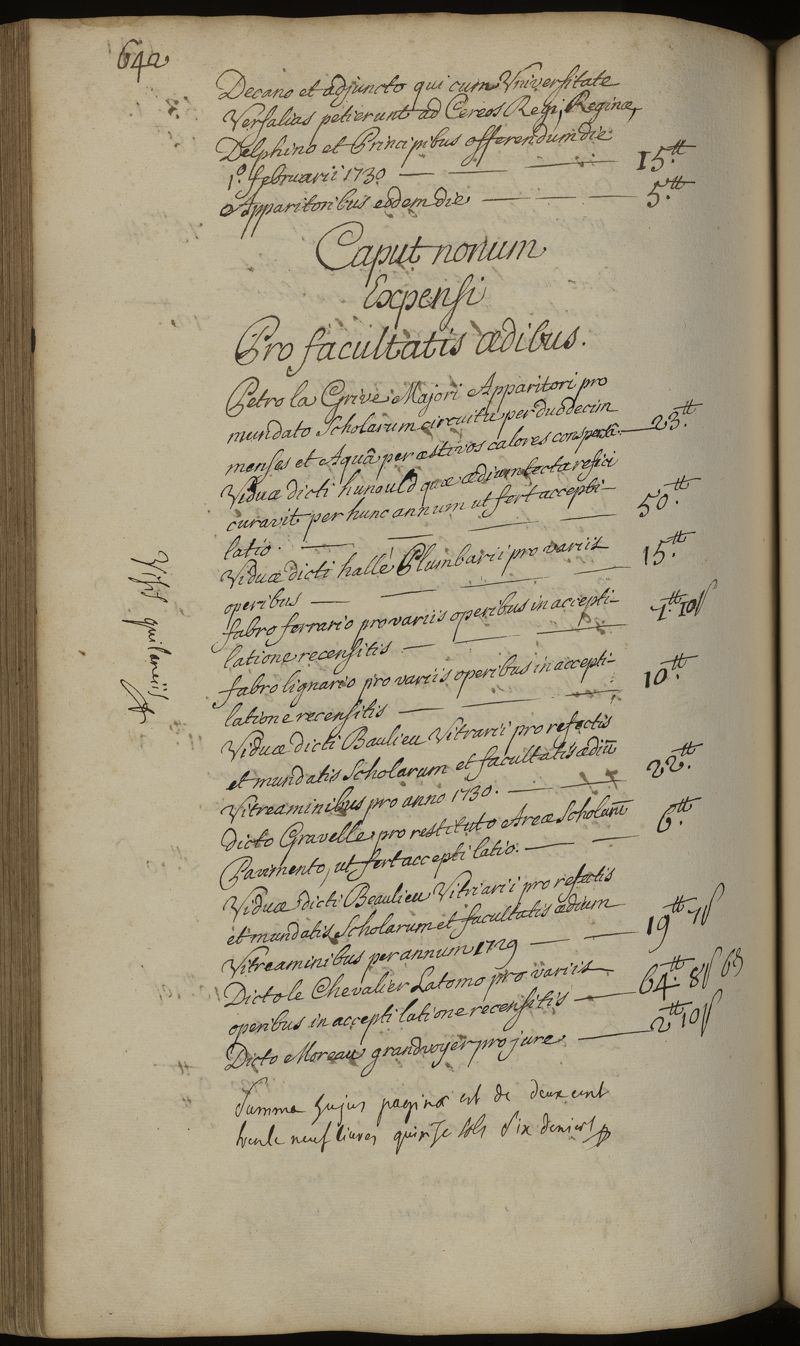 642
Decano et adjuncto qui cum Universitate
Versalias petierunt ad Cereos Regi, Reginæ,
Delphino et Principibus offerendum die
1º. februarii 1730 — — — 15.tt
Apparitoribus eodem die — — — 5.tt
Caput nonum
Expensi
Pro facultatis ædibus.
Petro la Grive Majori Apparitori pro
mundato Scholarum circuitu per duodecim
menses et Aquâ per æstivos calores conspersi. — 23.tt
Viduæ dicti hunould quæ ædium tecta refici
curavit per hunc annum ut fert accepti-
latio. — — — 50.tt
Viduæ dicti hallé Plumbarii pro variis
operibus — — — 15.tt
fabro ferrario pro variis operibus in accepti-
latione recensitis — — — 1.tt 10ſ
fabro lignario pro variis operibus in accepti-
latione recensitis — — — 10.tt
Viduæ dicti Baulieu Vitrarii pro refectis
et mundatis Scholarum et facultatis ædiū
Vitreaminibus pro anno 1730. — — 22.tt
Dicto Gravelle pro restituto Areæ Scholarū
Pavimento, ut fert accepti latio. — — 6.tt
Viduæ dicti Beaulieu Vitriarii pro refectis
et mundatis Scholarum et facultatis ædium
Vitreaminibus per annum 1729 — — 19.tt 7ſ
Dicto le Chevalier Latomo pro variis
operibus in accepti latione recensitis — 64.tt 8ſ 6₰
Dicto Moreau grandvoyer pro jure — 2.tt 10ſ
Summa hujus paginæ est de deux cent
trente neuf livres quinze sols six deniers